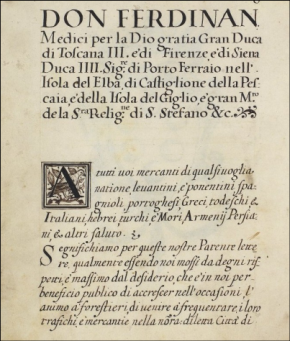 DON FERDINAN,
Medici per la Dio gratia Gran Duca
di Toscana III. e di Firenze è di Siena
Duca IIII. Sig.re di Porto Ferraio nell'
Isola del Elba, di Castiglione della Pes-
caia, e della Isola del Giglio, e gran M.ro
de la S.ra Relig.ne di S. Stefano &c.
A tutti uoi mercanti di qualsiuoglia
natione, leuantini, è ponentini spa
gnuoli, portoghesi Greci, todeschi è
Italiani, hebrei, turchi è Mori, Armenij Persia
ni, è altri saluto.
Significhiamo per queste nostre Patente lette
re, qualmente essendo noi mossi da degni ris
petti, è massimo dal desiderio, che è in noi per
beneficio publico di accrescer nell'occasioni l'
animo à forestieri, di uenire à frequentare, i loro
trafichi, è mercantie nella nora diletta Città di